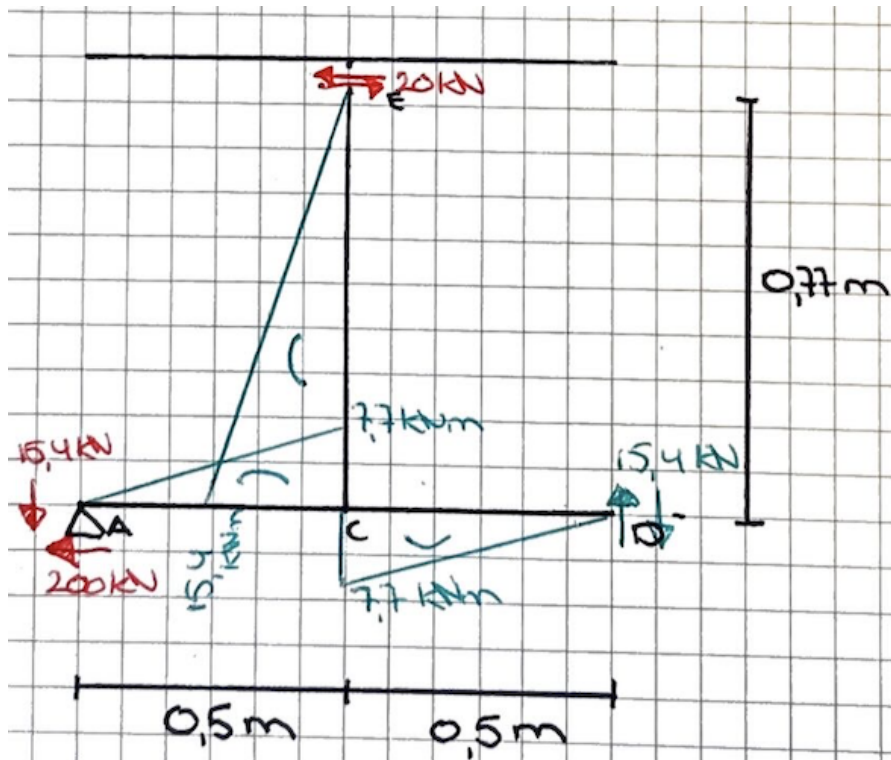 20 kN
E
0,77 m
7,7 kNm
15,4 kN
15,4 kN
A
C
D
200 kN
15,4 kNm
7,7 kNm
0,5 m
0,5 m